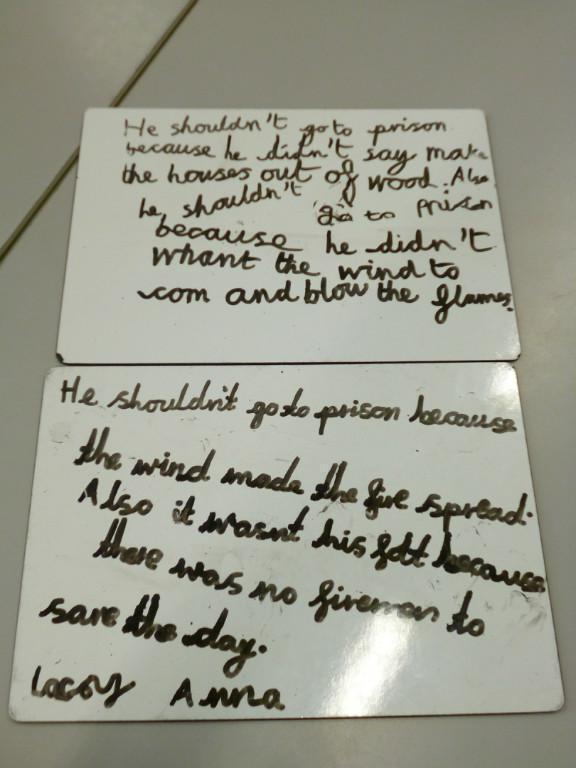 He shouldn't go to prison
because he didn't say make
the houses out of wood. Also
he shouldn't go to prison
because he didn't
whant the wind to
com and blow the flames.
He shouldn't go to prison because
the wind made the fire spread.
Also it wasnt his folt because
there was no fireman to
save the day.
Lacey Anna